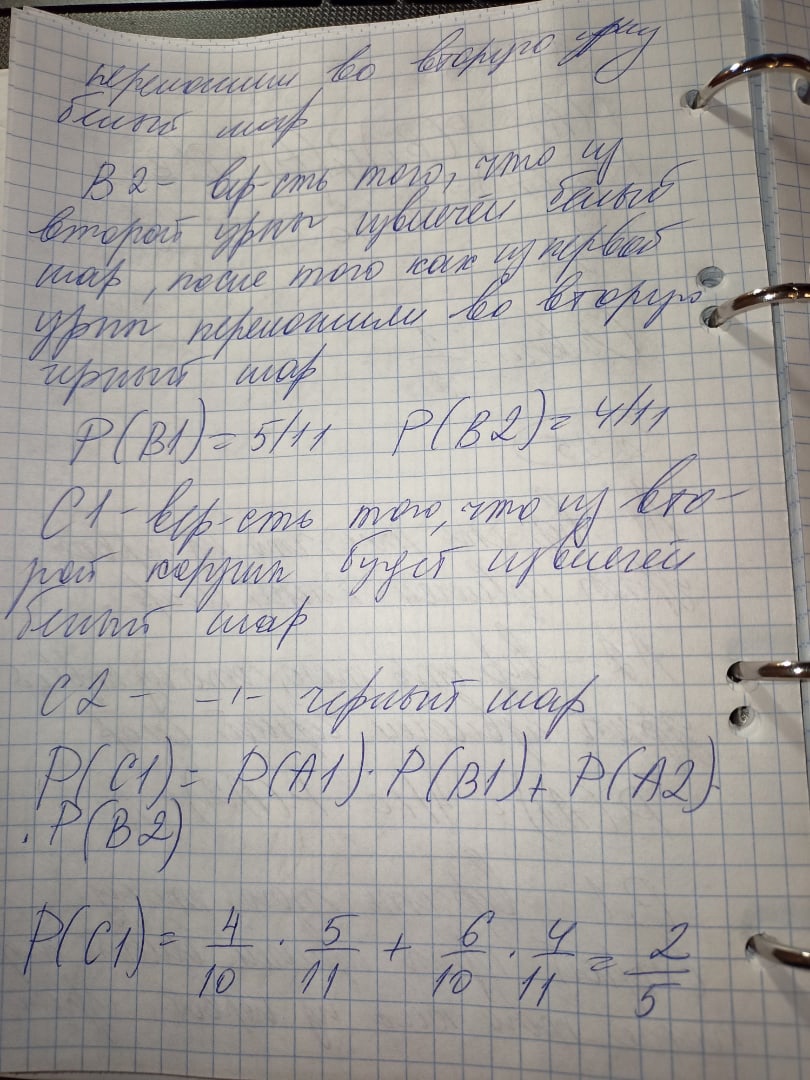 переложили во вторую урну
белый шар
B2 - вер-сть того, что из
второй урны извлечён белый
шар, после того как из первой
урны переложили во вторую
чрный шар
P(B1) = 5/11 P(B2) = 4/11
C1 - вер-сть того, что из вто-
рой корзин будет извлечён
белый шар
C2 - -"- черный шар
P(C1) = P(A1) · P(B1) + P(A2) ·
· P(B2)
P(C1) = 4/10 · 5/11 + 6/10 · 4/11 = 2/5